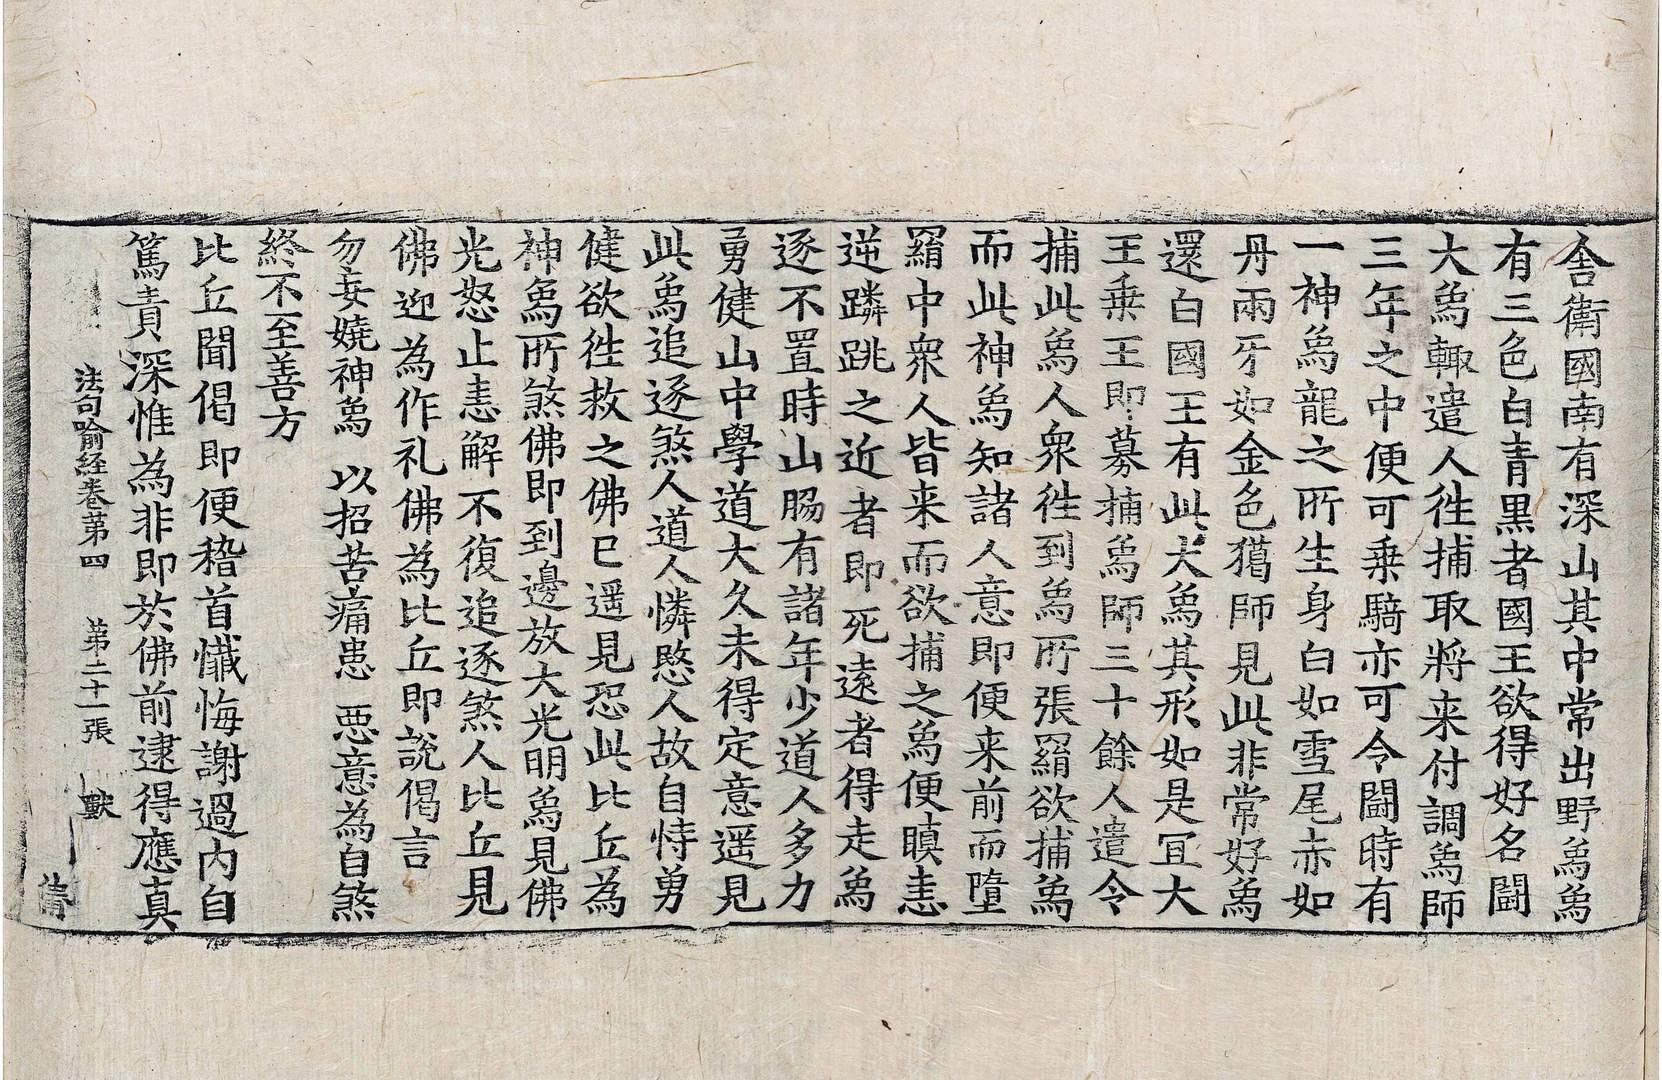 舍衛國南有深山其中常出野𤉢𤉢
有三色白青黑者國王欲得好名闘
大𤉢輙遣人徃捕取將来付調𤉢師
三年之中便可乗騎亦可令闘時有
一神𤉢龍之所生身白如雪尾赤如
丹兩牙如金色獦師見此非常好𤉢
還白國王有此大𤉢其形如是冝大
王乗王即募捕𤉢師三十餘人遣令
捕此𤉢人衆徃到𤉢所張羂欲捕𤉢
而此神𤉢知諸人意即便来前而墮
羂中衆人皆来而欲捕之𤉢便瞋恚
逆蹸跳之近者即死遠者得走𤉢
逐不置時山脇有諸年少道人多力
勇健山中學道大久未得定意遥見
此𤉢追逐煞人道人憐愍人故自恃勇
健欲徃救之佛已遥見恐此比丘為
神𤉢所煞佛即到邊放大光明𤉢見佛
光怒止恚解不復追逐煞人比丘見
佛迎為作礼佛為比丘即說偈言
勿妄嬈神𤉢 以招苦痛患 惡意為自煞
終不至善方
比丘聞偈即便稽首懺悔謝過内自
篤責深惟為非即於佛前逮得應真
法句喻経巻苐四 苐二十一張